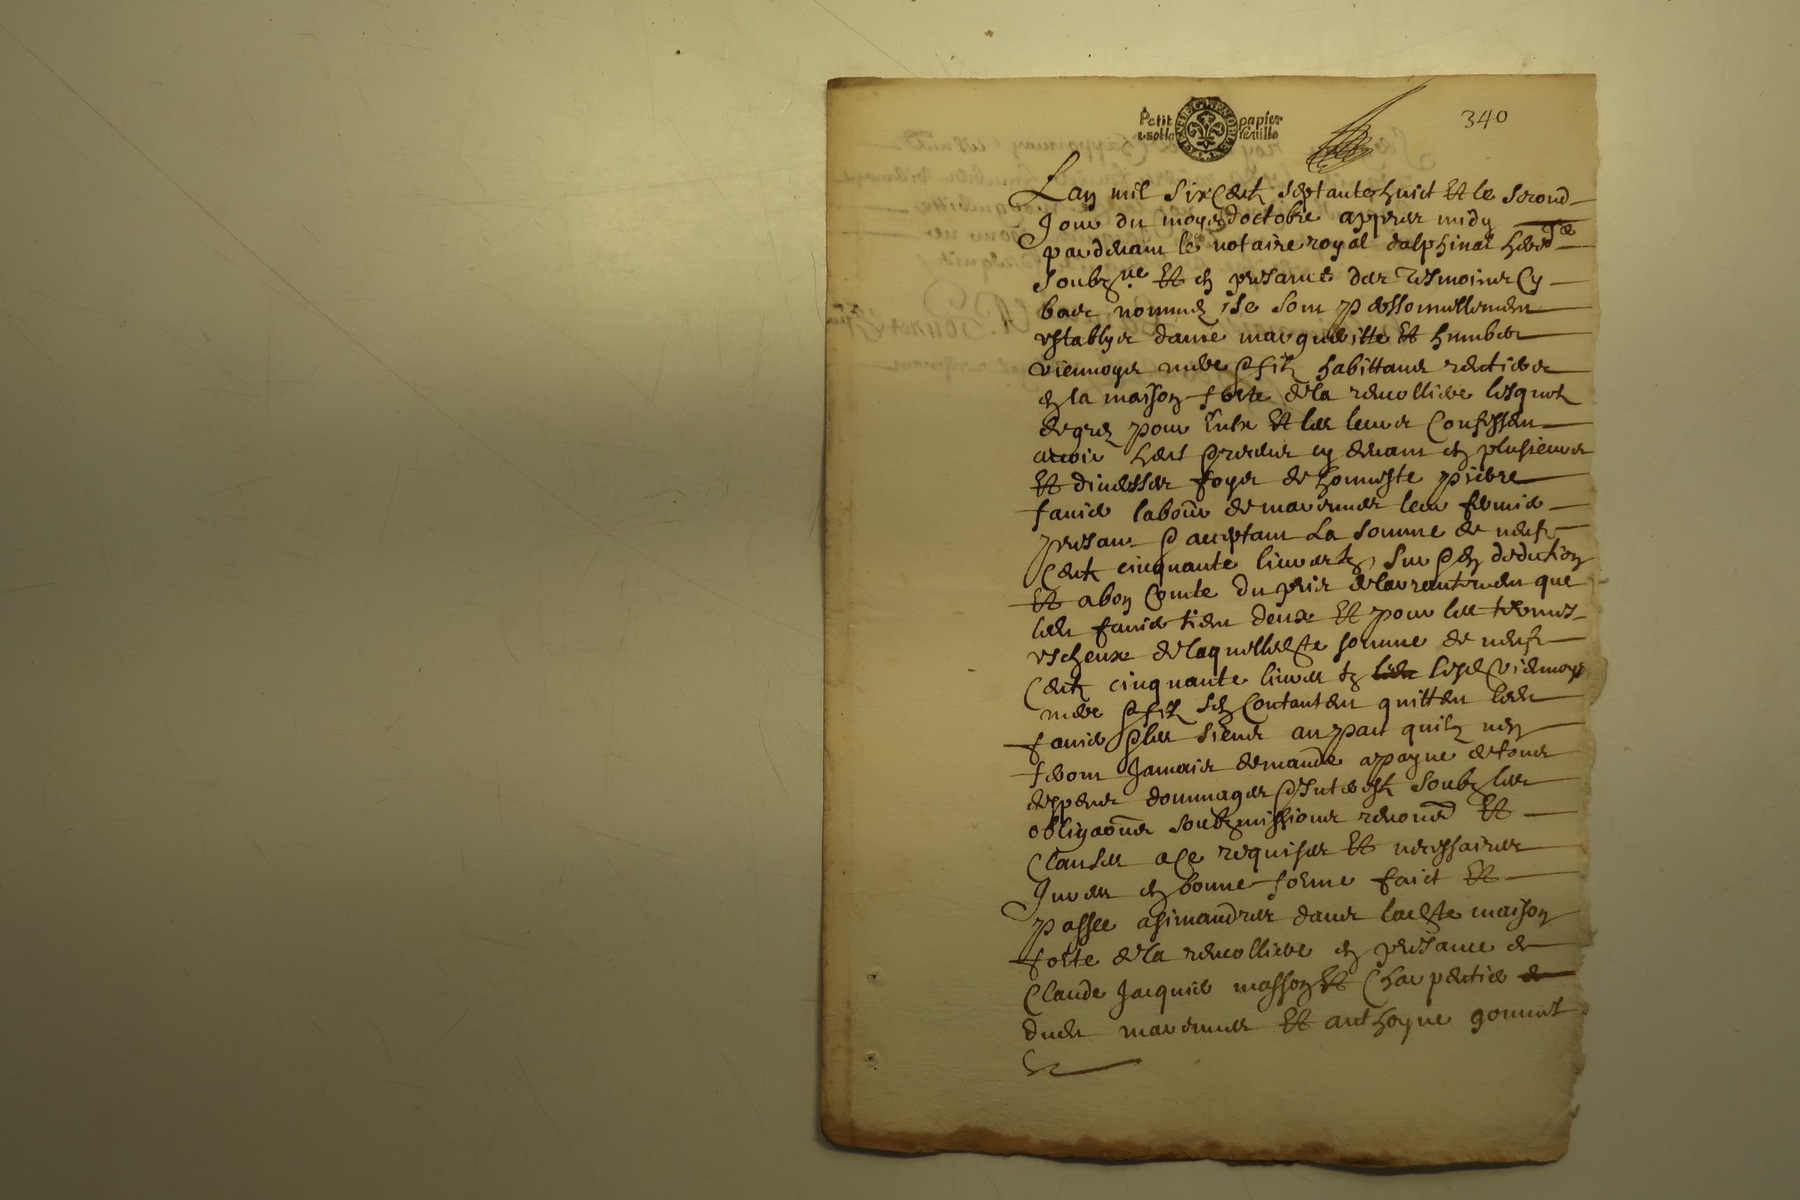 Petit papier
340
Lan mil six centz septante huict et le second
Jour du moys doctobre appres midy
pardevant le notaire royal dalphinal hered.re
soubz.né et en presance des tesmoins cy
bas nommez se sont personnellement
establys dame margueritte et humber
viennoys mere et filz habittans rentiers
en la maison forte de la revolliere lesquelz
de grez pour eulx et les leurs confessent
avoir heus et receus cy devant en plusieurs
et diversses foys de honneste pierre
favier labour de marennes leur fermier
presant et acceptant La somme de neufz
centz cinquante livres tz sur et en deduction
et a bon comte du prix de larrantement que
led favier tient deulx et pour les termes
escheux de laquelle somme de neufz
centz cinquante livres tz lesd viennoys
mere et filz sen contantent quittent led
favier et les siens au pact quilz nen
feront Jamais demande a payne de tous
despens dommages et interestz soubz les
obligaons soubzmissions renons et
clauses a ce requises et necessaires
Jurees en bonne forme faict et
passé a simandres dans ladte maison
forte de la revolliere en presance de
Claude Jacquier masson et charpentier
dud marennes et anthoyne gonnet